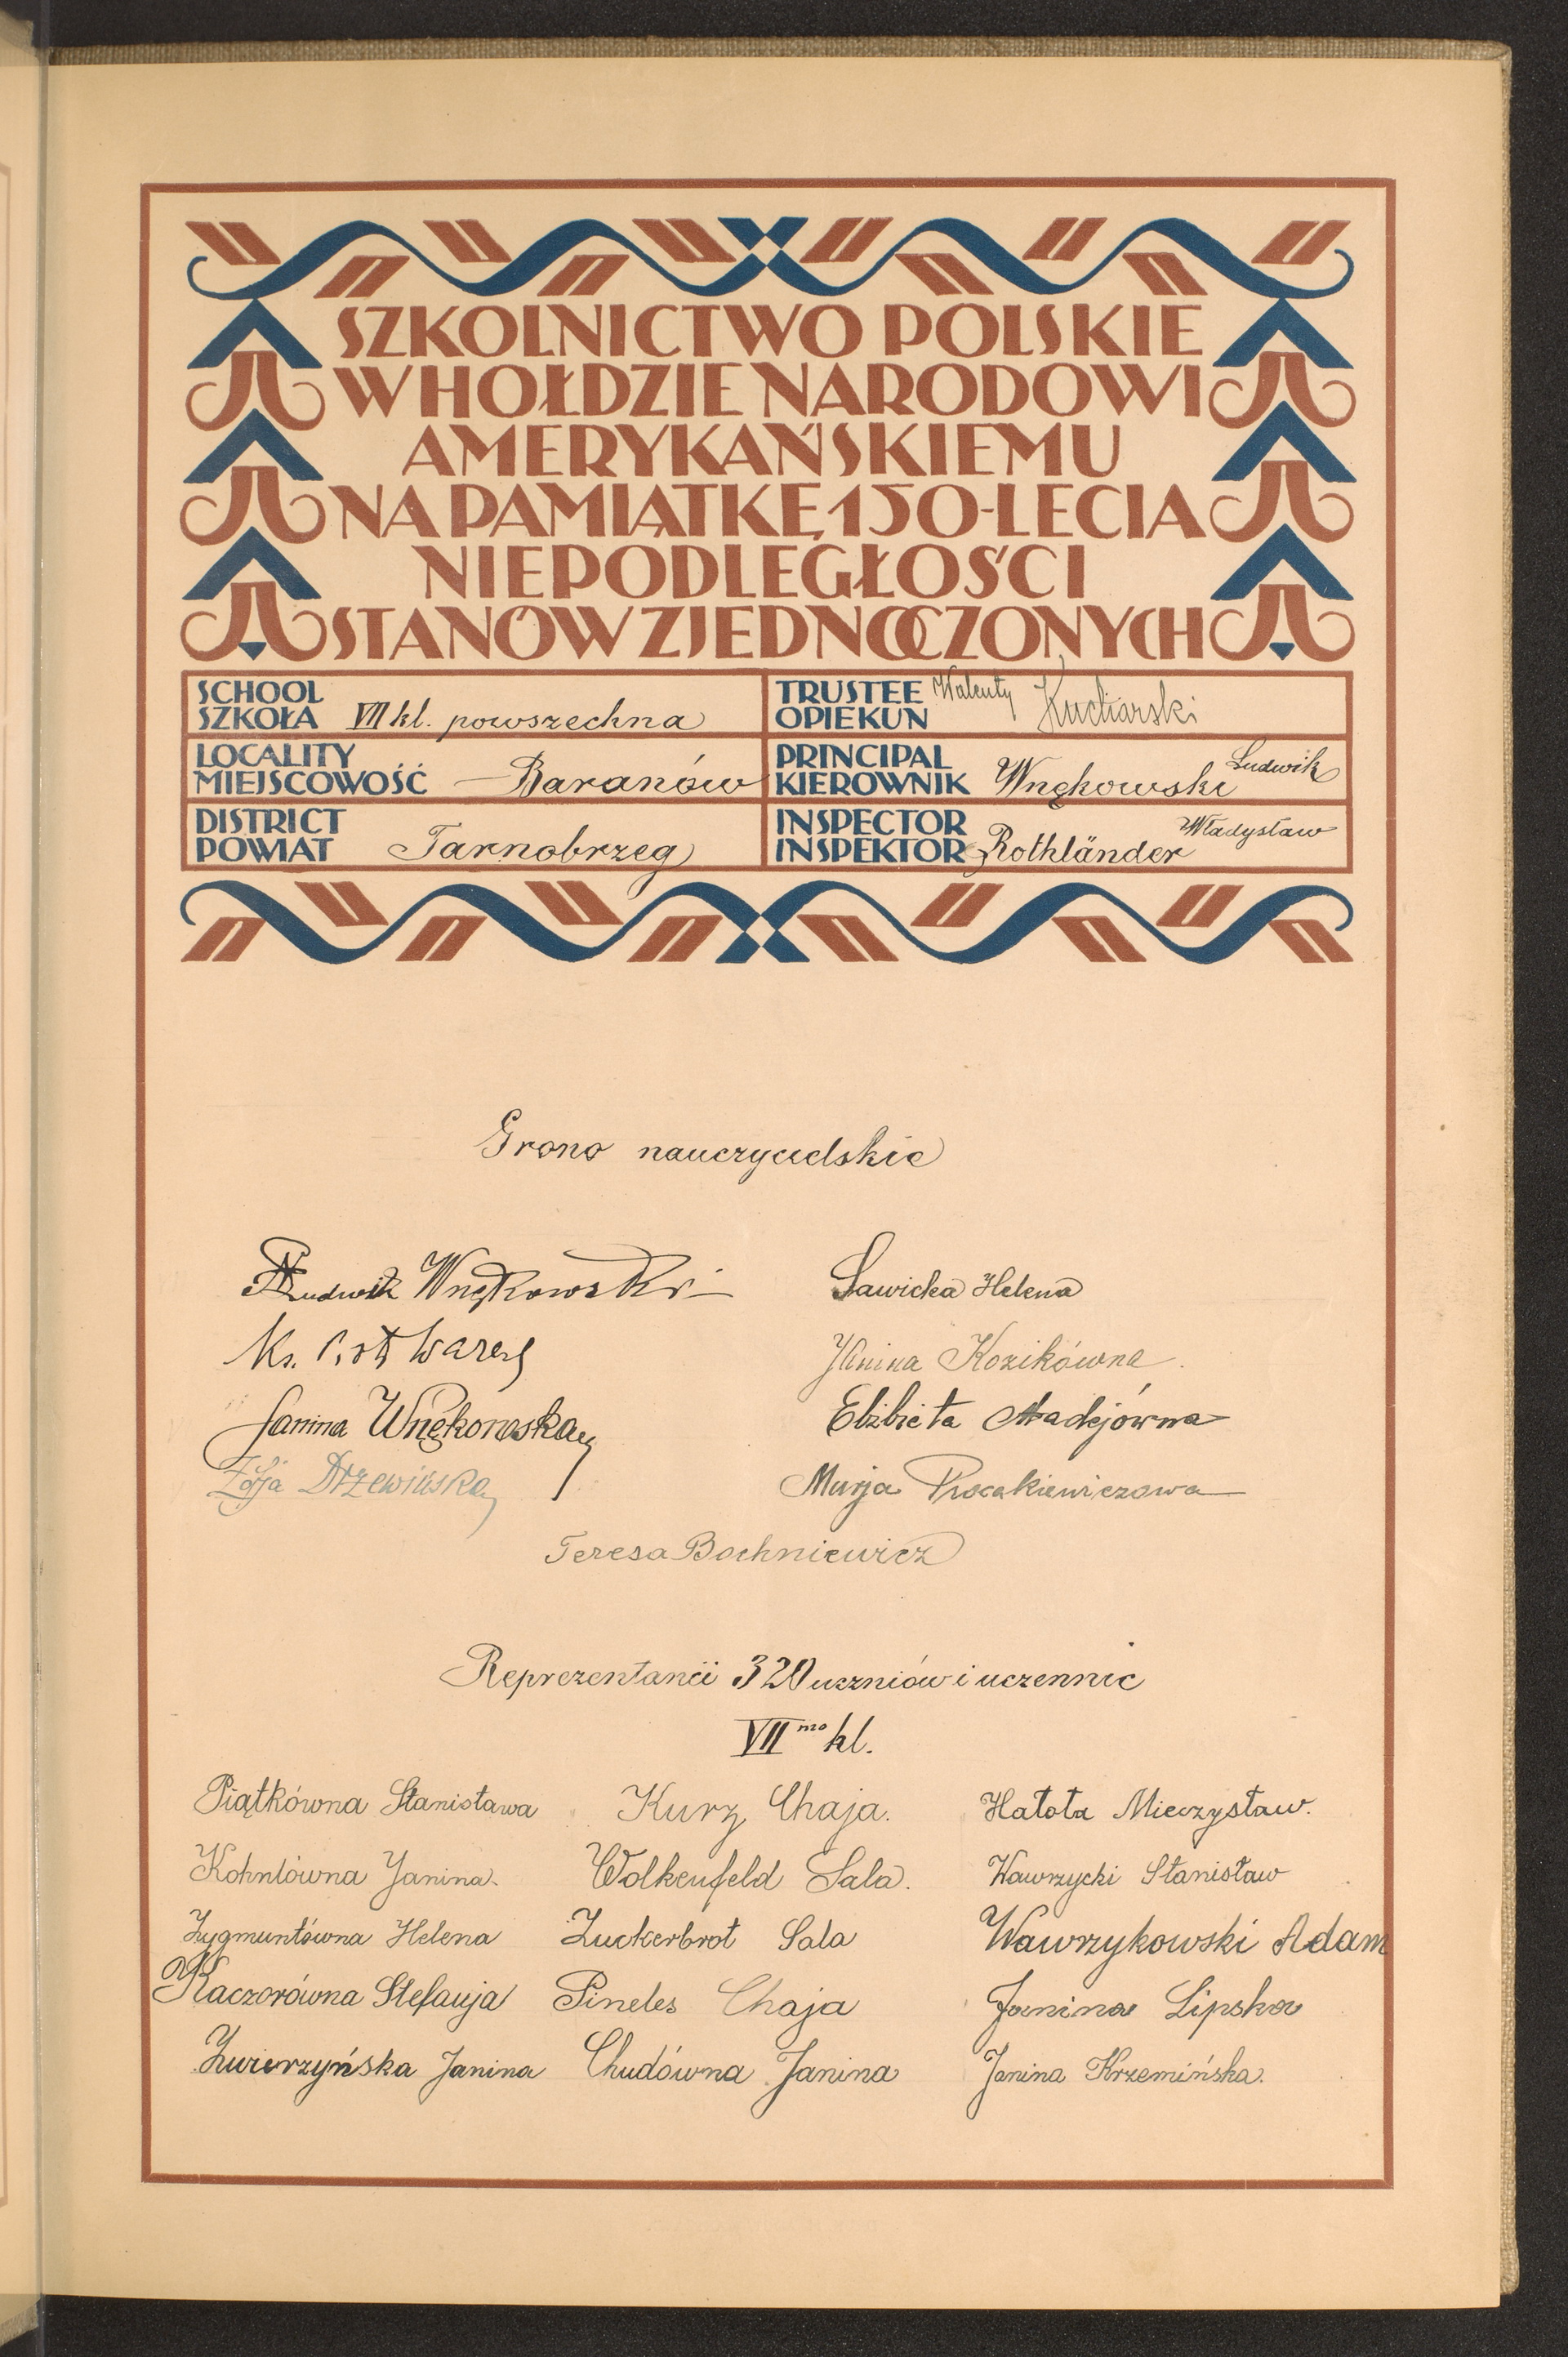 SZKOLNICTWO POLSKIE
W HOŁDZIE NARODOWI
AMERYKAŃSKIEMU
NA PAMIĄTKĘ 150-LECIA
NIEPODLEGŁOŚCI
STANÓW ZJEDNOCZONYCH
SCHOOL
SZKOŁA VII kl. powszechna
TRUSTEE
OPIEKUN Walenty Kucharski
LOCALITY
MIEJSCOWOŚĆ Baranów
PRINCIPAL
KIEROWNIK Wnękowski Ludwik
DISTRICT
POWIAT Tarnobrzeg
INSPECTOR
INSPEKTOR Rothländer Władysław
Grono nauczycielskie
Ludwik Wnękowski Sawicka Helena
Ks. Janina Kozikówna
Janina Wnękowska Elżbieta Madejówna
Zofja Drzewińska Marja Procakiewiczowa
Teresa Bochniewicz
Reprezentanci 320 uczniów i uczennic
VII mo kl.
Piątkówna Stanisława Kurz Chaja. Hałota Mieczysław.
Kohntówna Janina. Wolkenfeld Sala. Wawrzycki Stanisław
Zygmuntówna Helena Zuckerbrot Sala Wawrzykowski Adam
Kaczorówna Stefanja Pineles Chaja Janina Lipska
Zwierzyńska Janina Chudówna Janina Janina Krzemińska.